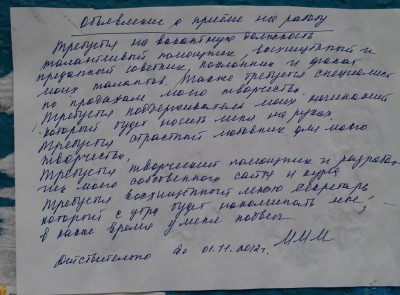 Объявление о приёме на работу
Требуется на вакантную должность
талантливый помощник, восхищённый и
преданный советник, поклонник и фанат
моих талантов. Также требуется специалист
по продажам моего творчества.
Требуется поддерживатель моих начинаний
который будет носить меня на руках.
Требуется страстный любовник для моего
творчества.
Требуется творческий помощник и разработ
чик моего собственного сайта и
Требуется восхищённый мною секретарь
который с утра будет напоминать мне,
в какое время у меня
Действительно до 01.11.2012г. МММ